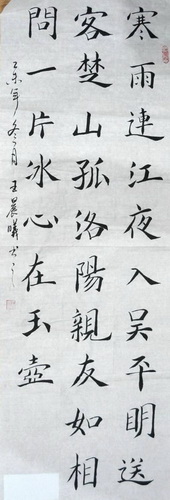 寒雨連江夜入吴平明送
客楚山孤洛陽親友如相
問一片冰心在玉壺
乙未年冬月王晨曦书